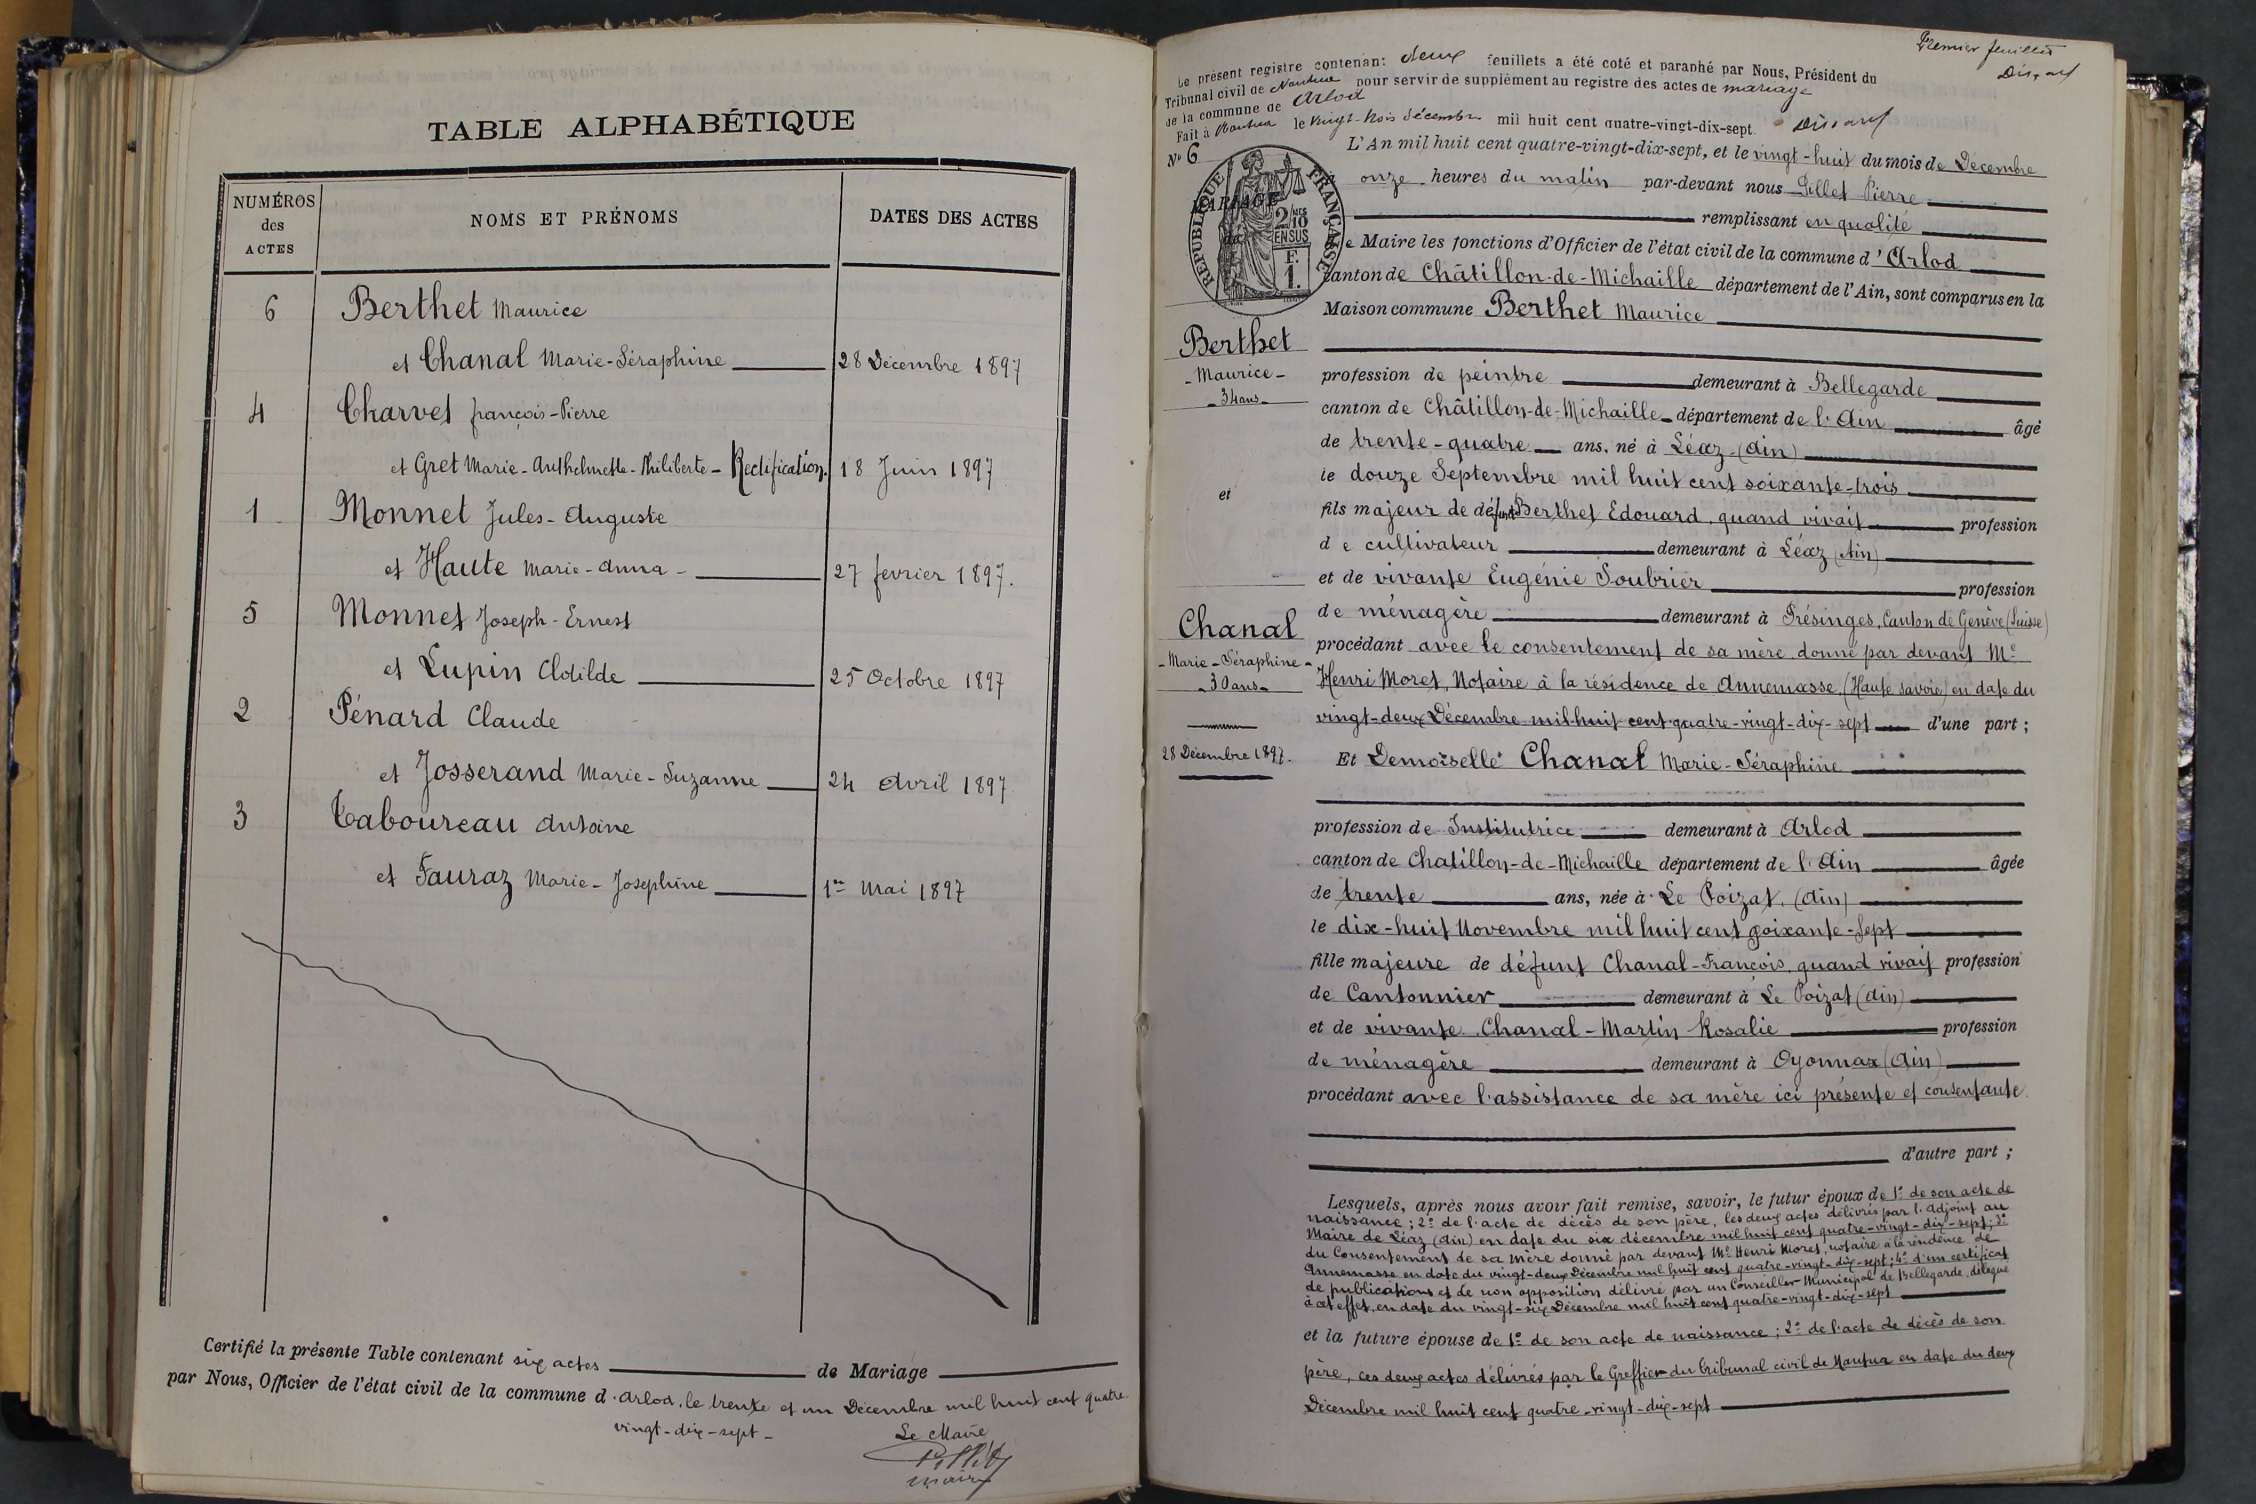 TABLE ALPHABÉTIQUE
NUMÉROS des ACTES
NOMS ET PRÉNOMS
DATES DES ACTES
6 Berthet Maurice
et Chanal Marie-Séraphine 28 Décembre 1897
4 Charvet françois-Pierre
et Gret Marie-Anthelmette-Philiberte - Rectification. 18 Juin 1897
1 Monnet Jules-Auguste
et Haute Marie-Anna - 27 fevrier 1897.
5 Monnet Joseph-Ernest
et Lupin Clotilde 25 Octobre 1897
2 Pénard Claude
et Josserand Marie-Suzanne 24 Avril 1897
3 Taboureau Antoine
et Fauraz Marie-Josephine 1er Mai 1897
Certifié la présente Table contenant six actes de Mariage
par Nous, Officier de l'état civil de la commune d'Arlod, le trente et un Décembre mil huit cent quatre
vingt-dix-sept -
Le Maire
maire
Premier feuillet
Le présent registre contenant deux feuillets a été coté et paraphé par Nous, Président du
Tribunal civil de Nantua pour servir de supplément au registre des actes de mariage
de la commune de Arlod
Fait à Nantua le vingt-trois décembre mil huit cent quatre-vingt-dix-sept.
No 6
RÉPUBLIQUE FRANÇAISE
2/10 MES
EN SUS
F.
1.
MARIAGE
de
Berthet
- Maurice -
- 34 ans -
et
Chanal
- Marie-Séraphine -
- 30 ans -
28 Décembre 1897.
L'An mil huit cent quatre-vingt-dix-sept, et le vingt-huit du mois de Décembre
onze heures du matin par-devant nous Pillet Pierre
remplissant en qualité
de Maire les fonctions d'Officier de l'état civil de la commune d'Arlod
canton de Châtillon-de-Michaille département de l'Ain, sont comparus en la
Maison commune Berthet Maurice
profession de peintre demeurant à Bellegarde
canton de Châtillon-de-Michaille département de l'Ain âgé
de trente-quatre ans, né à Léaz (Ain)
le douze Septembre mil huit cent soixante-trois
fils majeur de défunt Berthet Edouard, quand vivait profession
de cultivateur demeurant à Léaz (Ain)
et de vivante Eugénie Soubrier profession
de ménagère demeurant à Présinges, Canton de Genève (Suisse)
procédant avec le consentement de sa mère donné par devant Me
Henri Moret, Notaire à la résidence de Annemasse, (Haute Savoie) en date du
vingt-deux Décembre mil huit cent quatre-vingt-dix-sept d'une part ;
Et Demoiselle Chanal Marie-Séraphine
profession de Institutrice demeurant à Arlod
canton de Chatillon-de-Michaille département de l'Ain âgée
de trente ans, née à Le Poizat, (Ain)
le dix-huit Novembre mil huit cent soixante-sept
fille majeure de défunt Chanal-François, quand vivait profession
de Cantonnier demeurant à Le Poizat (Ain)
et de vivante Chanal-Martin Rosalie profession
de ménagère demeurant à Oyonnax (Ain)
procédant avec l'assistance de sa mère ici présente et consentante
d'autre part ;
Lesquels, après nous avoir fait remise, savoir, le futur époux de 1o de son acte de
naissance ; 2o de l'acte de décès de son père, les deux actes délivrés par l'Adjoint au
Maire de Léaz (Ain) en date du six décembre mil huit cent quatre-vingt-dix-sept ; 3o
du Consentement de sa mère donné par devant Me Henri Moret, notaire à la résidence de
Annemasse en date du vingt-deux Décembre mil huit cent quatre-vingt-dix-sept ; 4o d'un certificat
de publications et de non opposition délivré par un Conseiller Municipal de Bellegarde délégué
à cet effet, en date du vingt-six Décembre mil huit cent quatre-vingt-dix-sept
et la future épouse de 1o de son acte de naissance ; 2o de l'acte de décès de son
père, ces deux actes délivrés par le Greffier du Tribunal civil de Nantua en date du deux
Décembre mil huit cent quatre-vingt-dix-sept